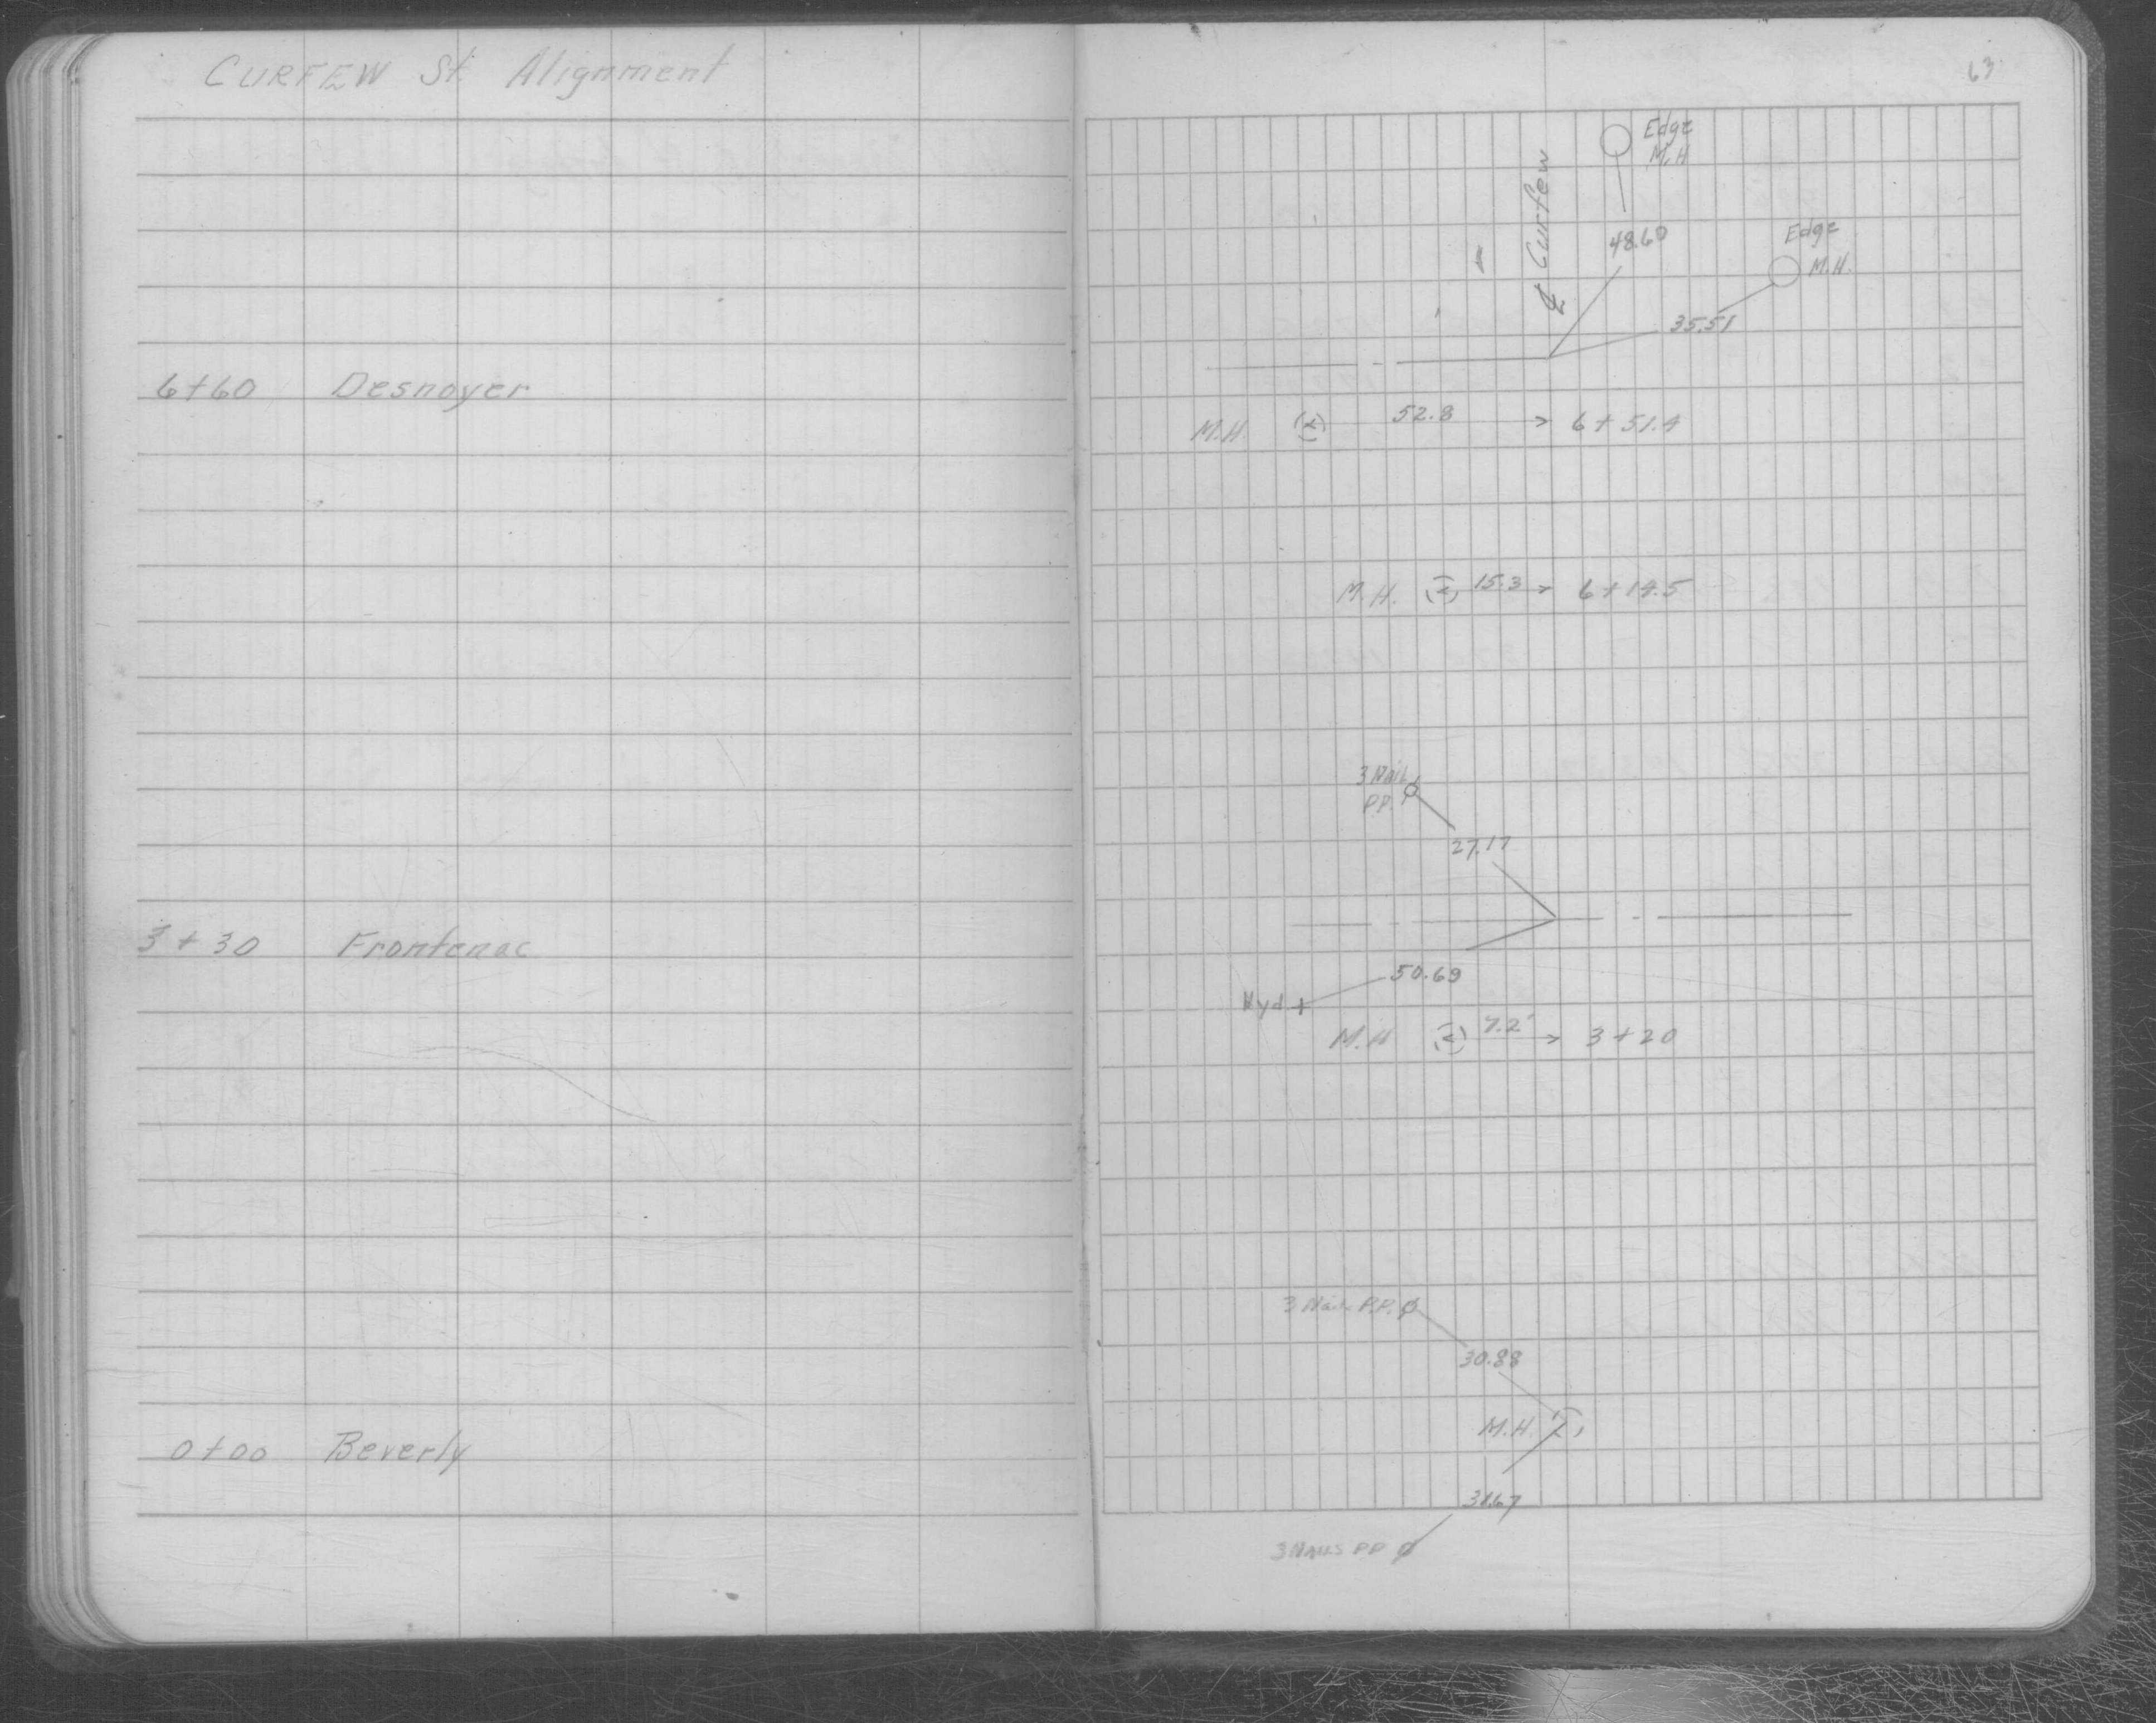 CURFEW St Alignment
6+60 Desnoyer
3+30 Frontenac
0+00 Beverly
63
Edge
M.H
℄ Curfew
48.60
Edge
M.H.
35.51
M.H. 52.8 → 6+51.4
M.H. 15.3 → 6+14.5
3 Nail
P.P.
27.17
50.69
Hyd
M.H 7.2' → 3+20
3 Nails P.P.
30.88
M.H.
31.67
3 NAILS PP